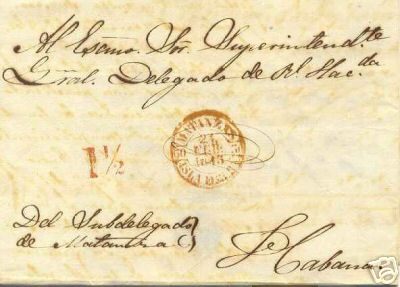 Al Exsmo. Sor. Superintend.te
Gral. Delegado de Rl. Hac.da
MATANZAS
21
FEB.
1845
1½
Del Subdelegado
de Matanzas
Habana